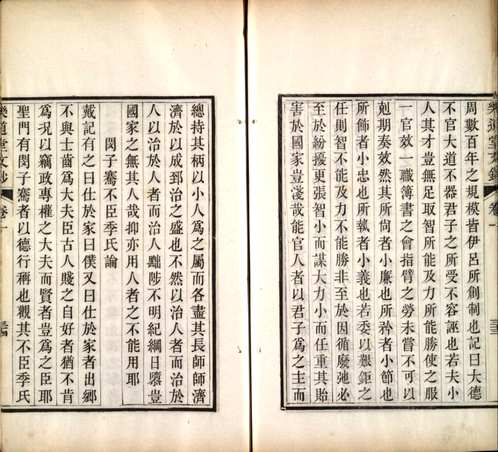 周數百年之規模皆伊呂所創制也記曰大德
不官大道不器君子之所受不容誣也若夫小
人其才豈無足取智所能及力所能勝使之服
一官效一職簿書之會指臂之勞未嘗不可以
剋期奏效然其所尚者小廉也所矜者小節也
所飾者小忠也所執者小義也若委以艱鉅之
任則智不能及力不能勝非至於因循廢弛必
至於紛擾更張智小而謀大力小而任重其貽
害於國家豈淺哉能官人者以君子為之主而
樂道堂文鈔
卷一
總持其柄以小人為之屬而各盡其長師師濟
濟於以成郅治之盛也不然以治人者而治於
人以治於人者而治人黜陟不明紀綱日隳豈
國家之無其人哉抑亦用人者之不能用耶
閔子騫不臣季氏論
戴記有之曰仕於家曰僕又曰仕於家者出鄉
不與士齒為大夫臣古人賤之自好者猶不肯
為況以竊政專權之大夫而賢者豈為之臣耶
聖門有閔子騫者以德行稱也觀其不臣季氏
樂道堂文鈔
卷一